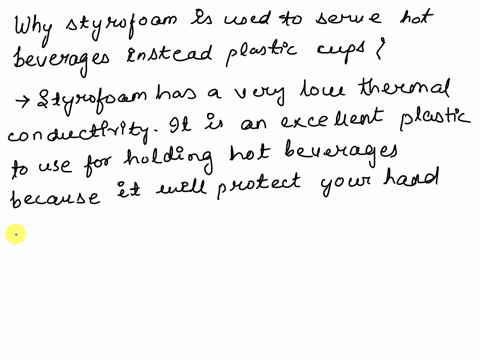 Why styrofoam is used to serve hot
beverages instead plastic cups?
→ Styrofoam has a very low thermal
conductivity. It is an excellent plastic
to use for holding hot beverages
because it will protect your hand